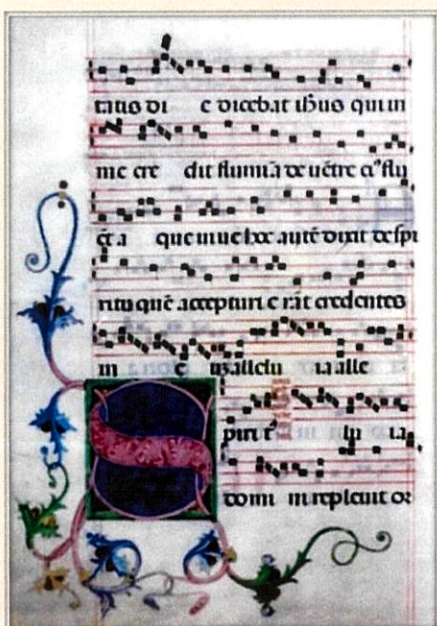 tatis di e dicebat ihus qui in
me cre dit flumina de uetre ei' flu
et a que uiue hoc aute dixit de spi
ritu que accepturi e rat credentes
in e u alleluia alle
piri t' lu ia
domi ni repleuit or